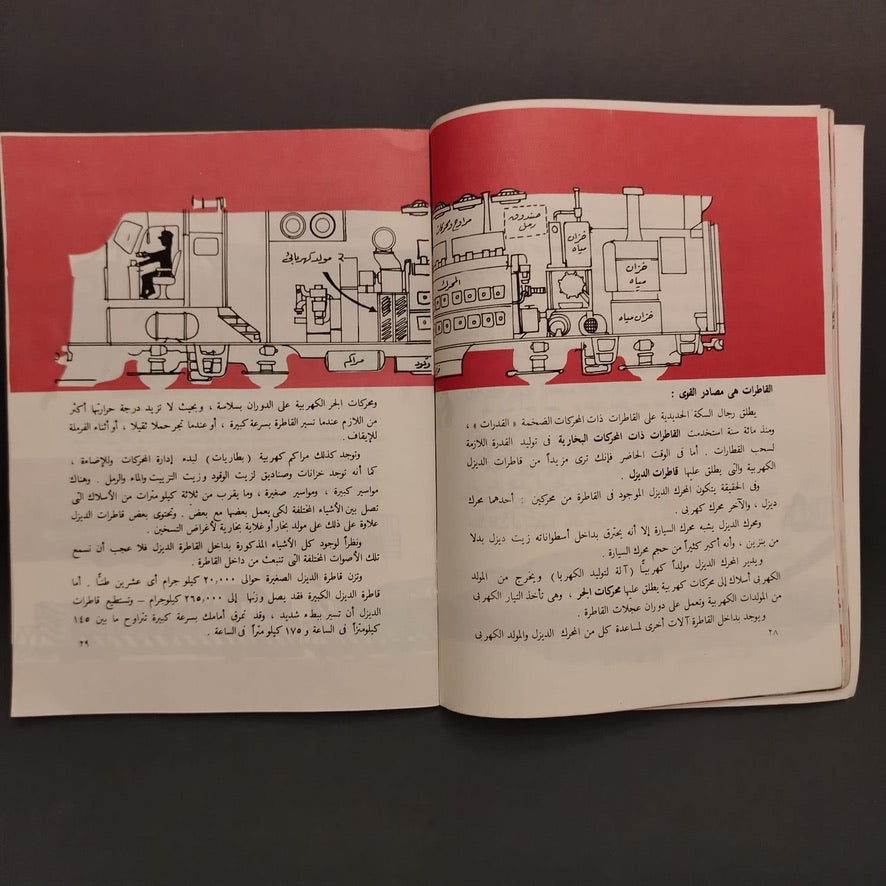 صندوق
رمل
مراوح ومحركات
خزان
مياه
خزان
مياه
خزان مياه
المحرك
القاطرات هى مصادر القوى :
يطلق رجال السكة الحديدية على القاطرات ذات المحركات الضخمة « القدرات » ،
ومنذ مائة سنة استخدمت القاطرات ذات المحركات البخارية فى توليد القدرة اللازمة
لسحب القطارات . أما فى الوقت الحاضر فإنك ترى مزيداً من قاطرات الديزل
الكهربية والتى يطلق عليها قاطرات الديزل .
وفى الحقيقة يتكون المحرك الديزل الموجود فى القاطرة من محركين : أحدهما محرك
ديزل ، والآخر محرك كهربى .
ومحرك الديزل يشبه محرك السيارة إلا أنه يحترق بداخل أسطواناته زيت ديزل بدلا
من بنزين ، وأنه أكبر كثيراً من حجم محرك السيارة .
ويدير المحرك الديزل مولداً كهربيًّا ( آلة لتوليد الكهربا ) ويخرج من المولد
الكهربى أسلاك إلى محركات كهربية يطلق عليها محركات الجر ، وهى تأخذ التيار الكهربى
من المولدات الكهربية وتعمل على دوران عجلات القاطرة .
ويوجد بداخل القاطرة آلات أخرى لمساعدة كل من المحرك الديزل والمولد الكهربى
٢٨
مولد كهربائى
مراكم
وقود
ومحركات الجر الكهربية على الدوران بسلاسة ، وبحيث لا تزيد درجة حرارتها أكثر
من اللازم عندما تسير القاطرة بسرعة كبيرة ، أو عندما تجر حملا ثقيلا ، أو أثناء الفرملة
للإيقاف .
وتوجد كذلك مراكم كهربية ( بطاريات ) لبدء إدارة المحركات وللإضاءة ،
كما أنه توجد خزانات وصناديق لزيت الوقود وزيت التزييت والماء والرمل . وهناك
مواسير كبيرة ، ومواسير صغيرة ، وما يقرب من ثلاثة كيلو مترات من الأسلاك التى
تصل بين الأشياء المختلفة لكى يعمل بعضها مع بعض . وتحتوى بعض قاطرات الديزل
علاوة على ذلك على مولد بخار أو غلاية بخارية لأغراض التسخين .
ونظراً لوجود كل الأشياء المذكورة بداخل القاطرة الديزل فلا عجب أن نسمع
تلك الأصوات المختلفة التى تنبعث من داخل القاطرة .
وتزن قاطرة الديزل الصغيرة حوالى ٢٠,٠٠٠ كيلو جرام أى عشرين طنًّا . أما
قاطرة الديزل الكبيرة فقد يصل وزنها إلى ٢٦٥,٠٠٠ كيلوجرام – وتستطيع قاطرات
الديزل أن تسير ببطء شديد ، وقد تمرق أمامك بسرعة كبيرة تتراوح ما بين ١٤٥
كيلومتراً فى الساعة و ١٧٥ كيلو متراً فى الساعة .
٢٩